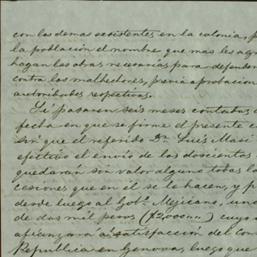 con los demas existentes en la colonia, p
la poblacion el nombre que mas les agr
hagan las obras necesarias para defender
contra los malhechores, previa aprobacion
autoridades respectivas.
Si pasaren seis meses contados d
fecha en que se firme el presente c
sin que el referido Dr. Luis Masi
efectue el envio de los doscientos
quedarán sin valor alguno todas la
cesiones que en el se le hacen, y p
desde luego al Gobo. Mejicano, una
de dos mil pesos ($2,000..) cuyo
afianzara a satisfaccion del Con
Republica en Genova, luego que